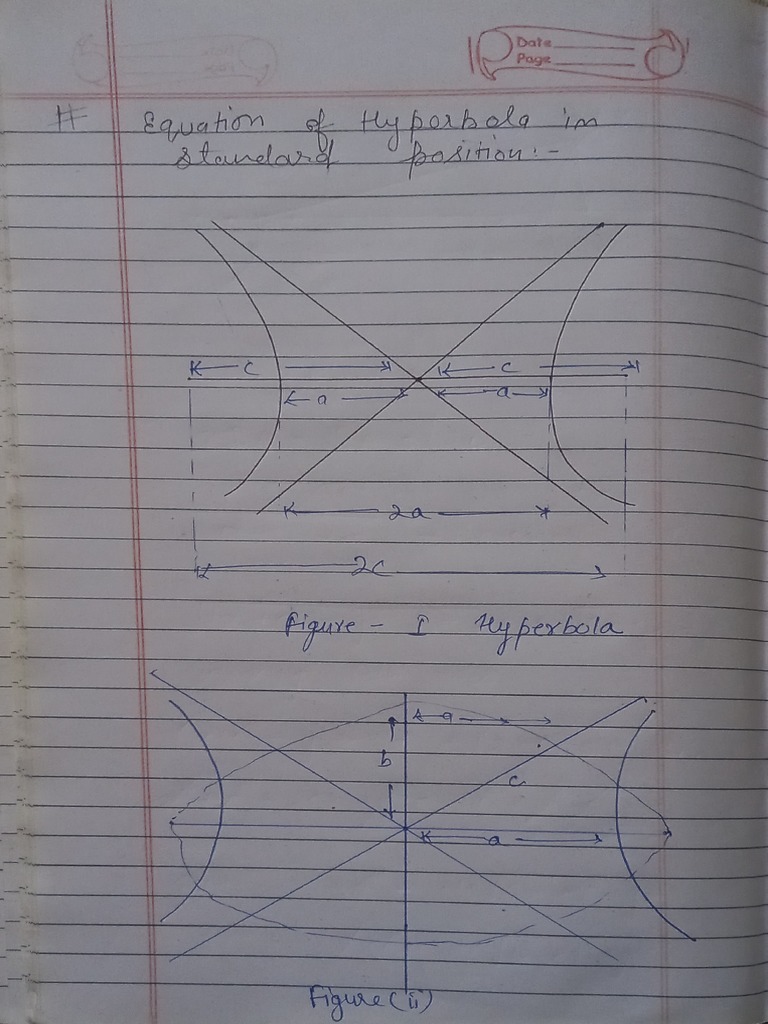 Date
Page
# Equation of Hyperbola in
standard position:-
c c
a a
2a
2c
Figure - I Hyperbola
a
b
c
a
Figure (ii)